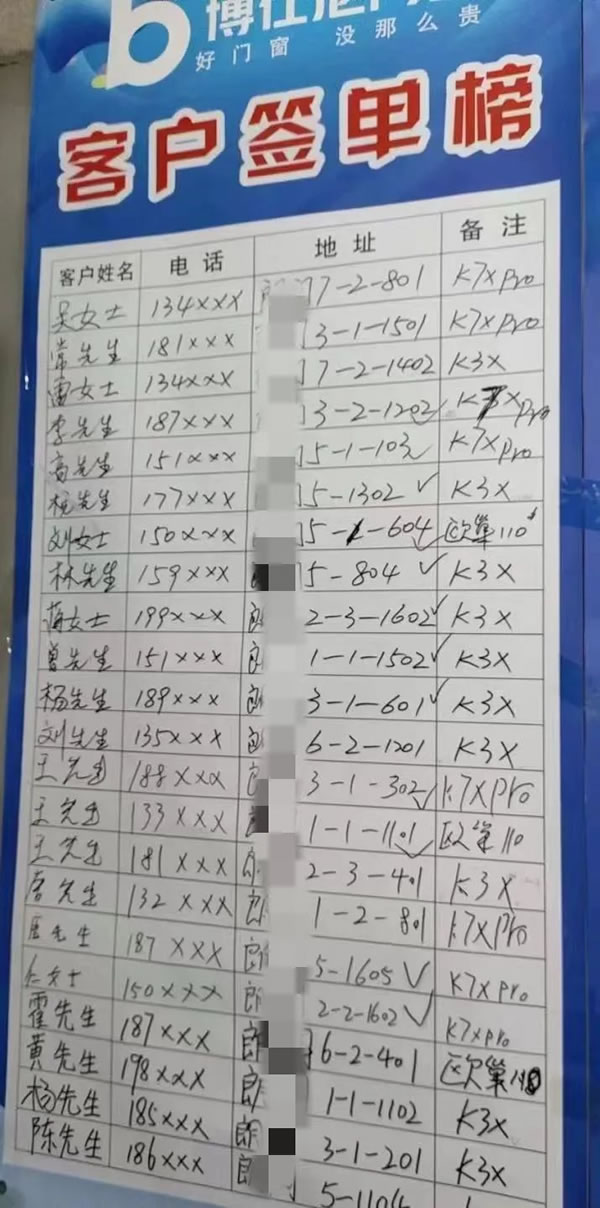 b 博仕
好门窗 没那么贵
客户签单榜
客户姓名 电话 地址 备注
吴女士 134××× 7-2-801 K7xpro
常先生 181××× 3-1-1501 K7xpro
雷女士 134××× 7-2-1402 K3x
李先生 187××× 3-2-1202✓ Pro
高先生 151××× 5-1-103 K7xpro
杨先生 177××× 5-1302✓ K3X
刘女士 150××× 5-1-604✓ 欧巢110
林先生 159××× 5-804✓ K3X
蒋女士 199××× 2-3-1602✓ K3X
曾先生 151××× 1-1-1502✓ K3X
杨先生 189××× 郎 3-1-601✓ K3X
刘先生 135××× 6-2-1201 K3X
王先生 188××× 3-1-302✓ K7XPro
王先生 133××× 1-1-1101✓ 欧巢110
王先生 181××× 2-3-401 K3X
132××× 郎 1-2-801 K7XPro
先生 187××× 郎 5-1605✓ K7xpro
女士 150××× 郎 2-2-1602✓ K7xpro
霍先生 187××× 郎 6-2-401 欧巢110
黄先生 198××× 郎 1-1-1102 K3X
杨先生 185××× 郎 3-1-201 K3X
陈先生 186××× 郎 5-1104